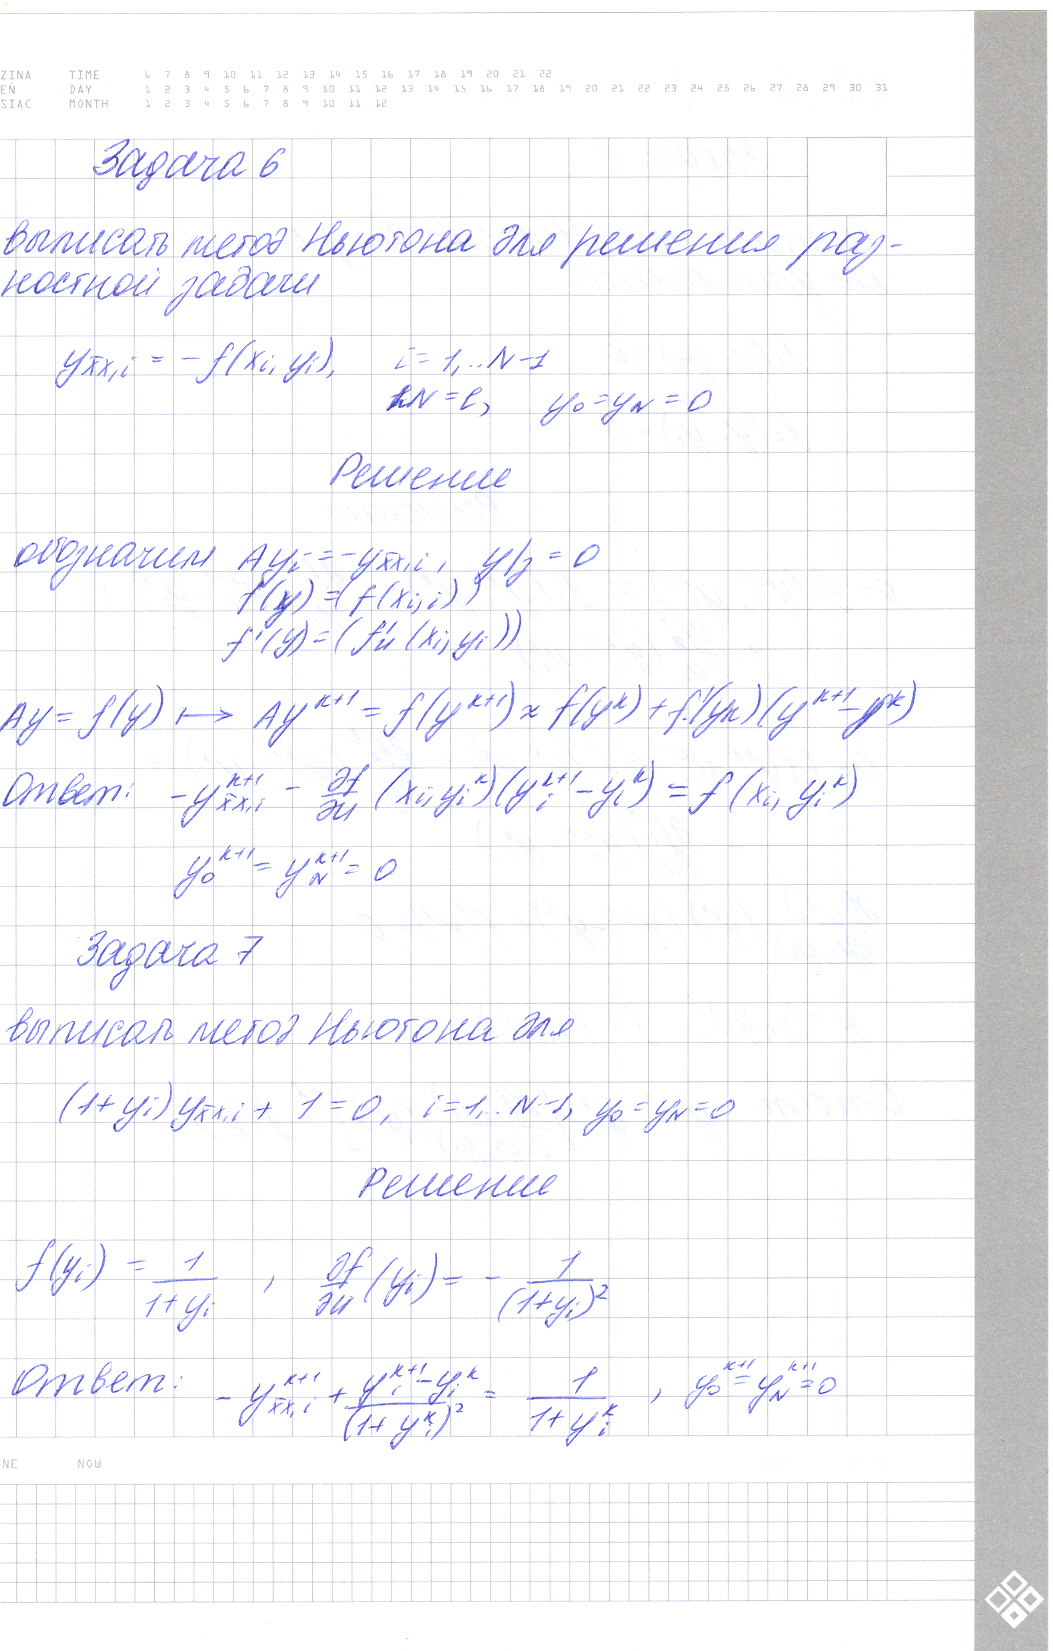 ZINA TIME 6 7 8 9 10 11 12 13 14 15 16 17 18 19 20 21 22
EŃ DAY 1 2 3 4 5 6 7 8 9 10 11 12 13 14 15 16 17 18 19 20 21 22 23 24 25 26 27 28 29 30 31
SIĄC MONTH 1 2 3 4 5 6 7 8 9 10 11 12
Задача 6
выписать метод Ньютона для решения раз-
ностной задачи
y_{x̄x,i} = -f(x_i, y_i), i = 1,..N-1
hN = l, y_0 = y_N = 0
Решение
обозначим Ay_i = -y_{x̄x,i}, y|_γ = 0
f(y) = (f(x_i, i))
f'(y) = (f'_u(x_i, y_i))
Ay = f(y) ↦ Ay^{k+1} = f(y^{k+1}) ≈ f(y^k) + f'(y_k)(y^{k+1} - y^k)
Ответ: -y^{k+1}_{x̄x,i} - ∂f/∂u (x_i, y_i^k)(y_i^{k+1} - y_i^k) = f(x_i, y_i^k)
y_0^{k+1} = y_N^{k+1} = 0
Задача 7
выписать метод Ньютона для
(1+y_i) y_{x̄x,i} + 1 = 0, i = 1,..N-1, y_0 = y_N = 0
Решение
f(y_i) = 1/(1+y_i), ∂f/∂u (y_i) = - 1/(1+y_i)^2
Ответ: -y^{k+1}_{x̄x,i} + (y_i^{k+1} - y_i^k)/(1+y_i^k)^2 = 1/(1+y_i^k), y_0^{k+1} = y_N^{k+1} = 0
NE NOW